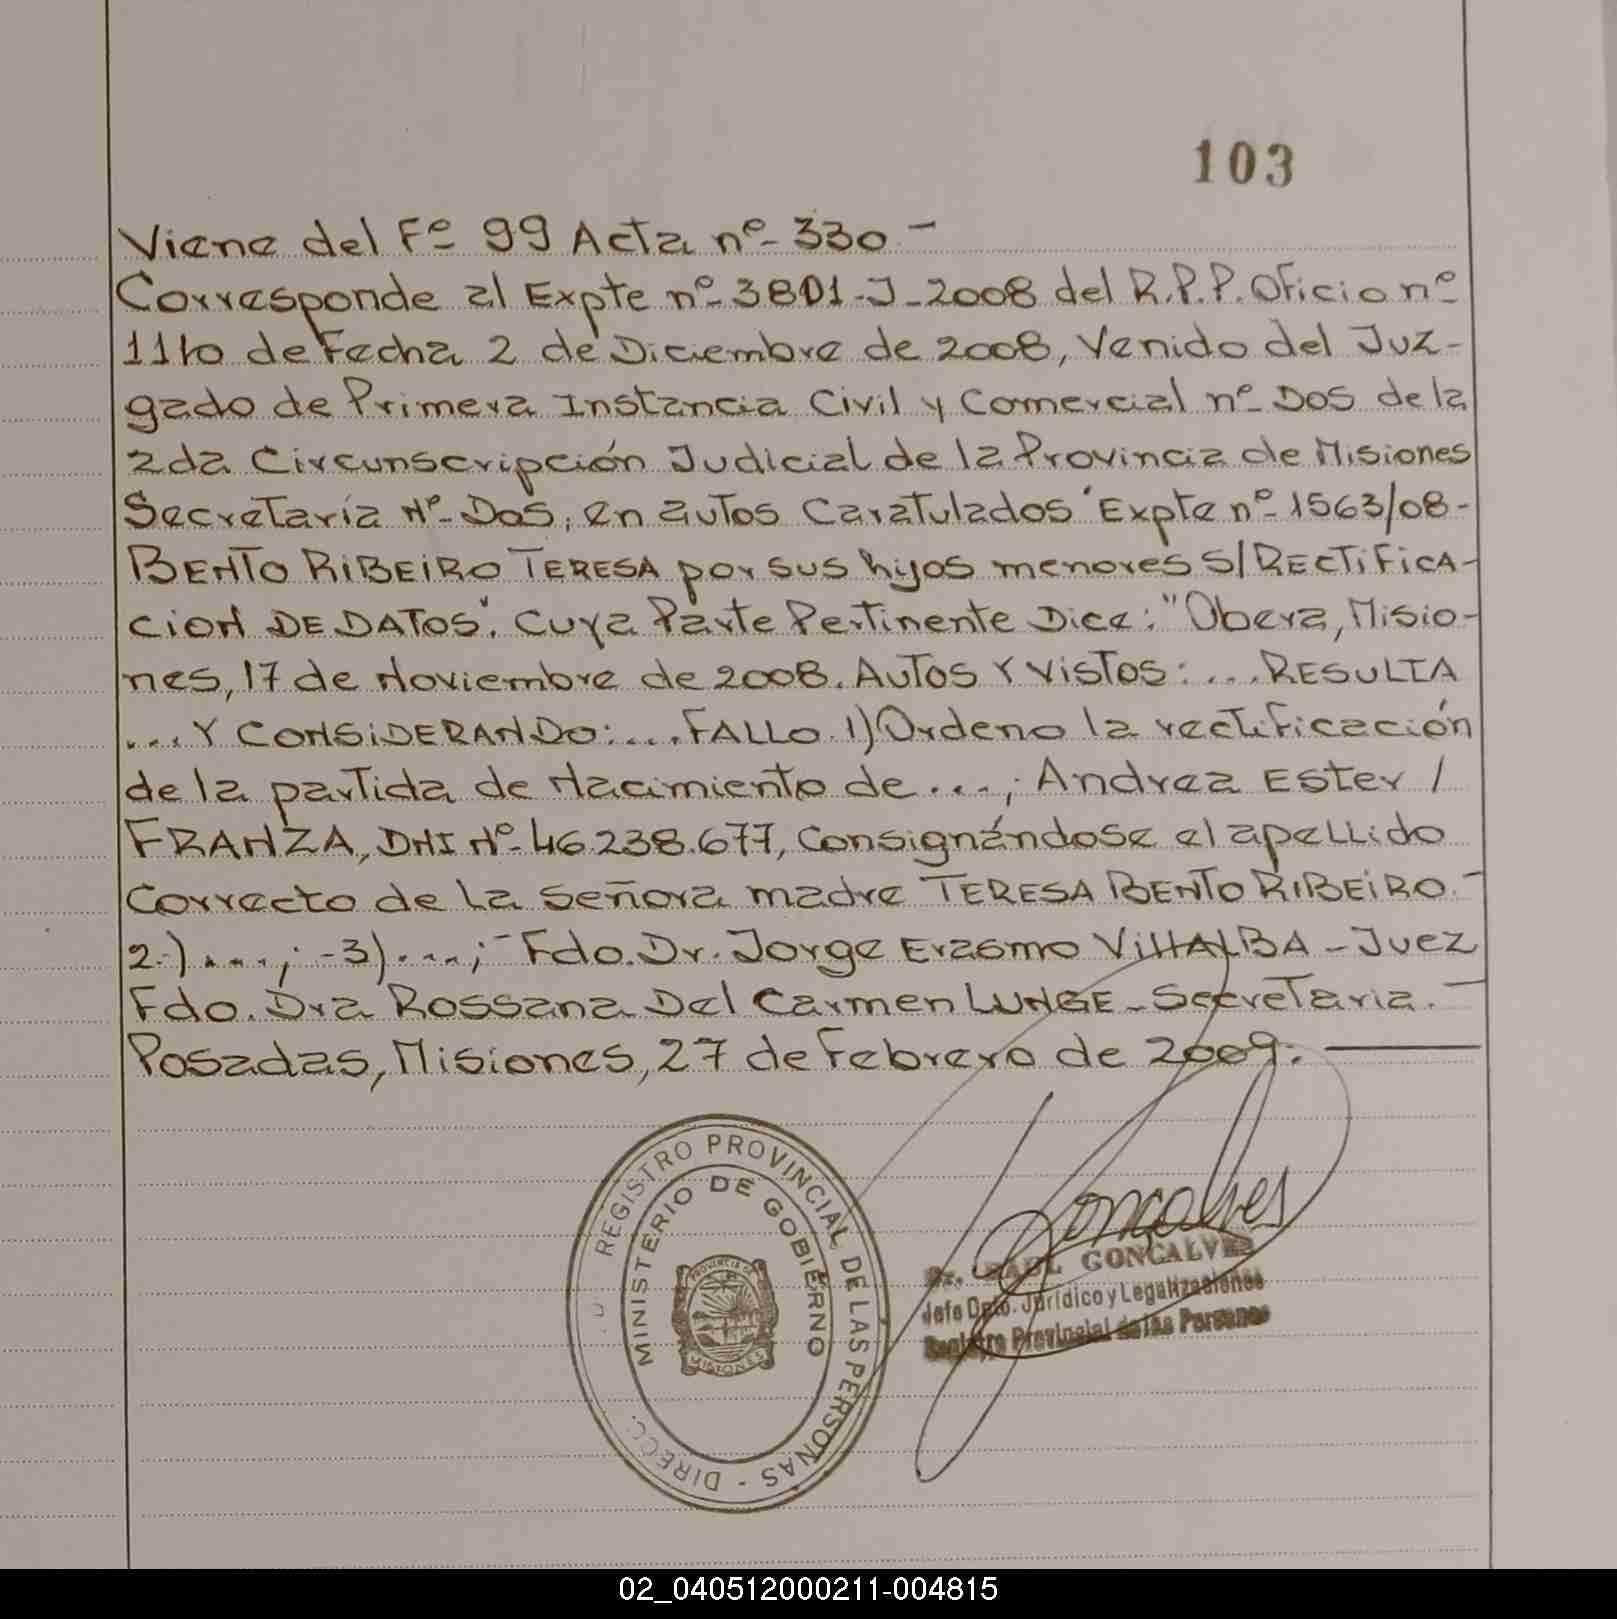 103
Viene del Fº 99 Acta nº 330 -
Corresponde al Expte nº 3801-J-2008 del R.P.P. Oficio nº
1110 de Fecha 2 de Diciembre de 2008, Venido del Juz-
gado de Primera Instancia Civil y Comercial nº Dos de la
2da Circunscripción Judicial de la Provincia de Misiones
Secretaría Nº Dos, en autos Caratulados "Expte nº 1563/08-
BENTO RIBEIRO TERESA por sus hijos menores S/RECTIFICA-
CION DE DATOS". Cuya Parte Pertinente Dice: "Obera, Misio-
nes, 17 de Noviembre de 2008. AUTOS Y VISTOS: ... RESULTA
... Y CONSIDERANDO: .... FALLO 1) Ordeno la rectificación
de la partida de Nacimiento de ...; Andrea Ester /
FRANZA, DNI Nº 46.238.677, Consignándose el apellido
Correcto de la Señora madre TERESA BENTO RIBEIRO. -
2.) ....; -3) ....; - Fdo. Dr. Jorge Erasmo VILLALBA - Juez
Fdo. Dra Rossana Del Carmen LUNGE - Secretaria. -
Posadas, Misiones, 27 de Febrero de 2009. —
REGISTRO PROVINCIAL DE LAS PERSONAS - DIRECC.
MINISTERIO DE GOBIERNO
PROVINCIA DE
MISIONES
Goncalves
Dr. RAUL GONCALVES
Jefe Dpto. Jurídico y Legalizaciones
Registro Provincial de las Personas
02_040512000211-004815